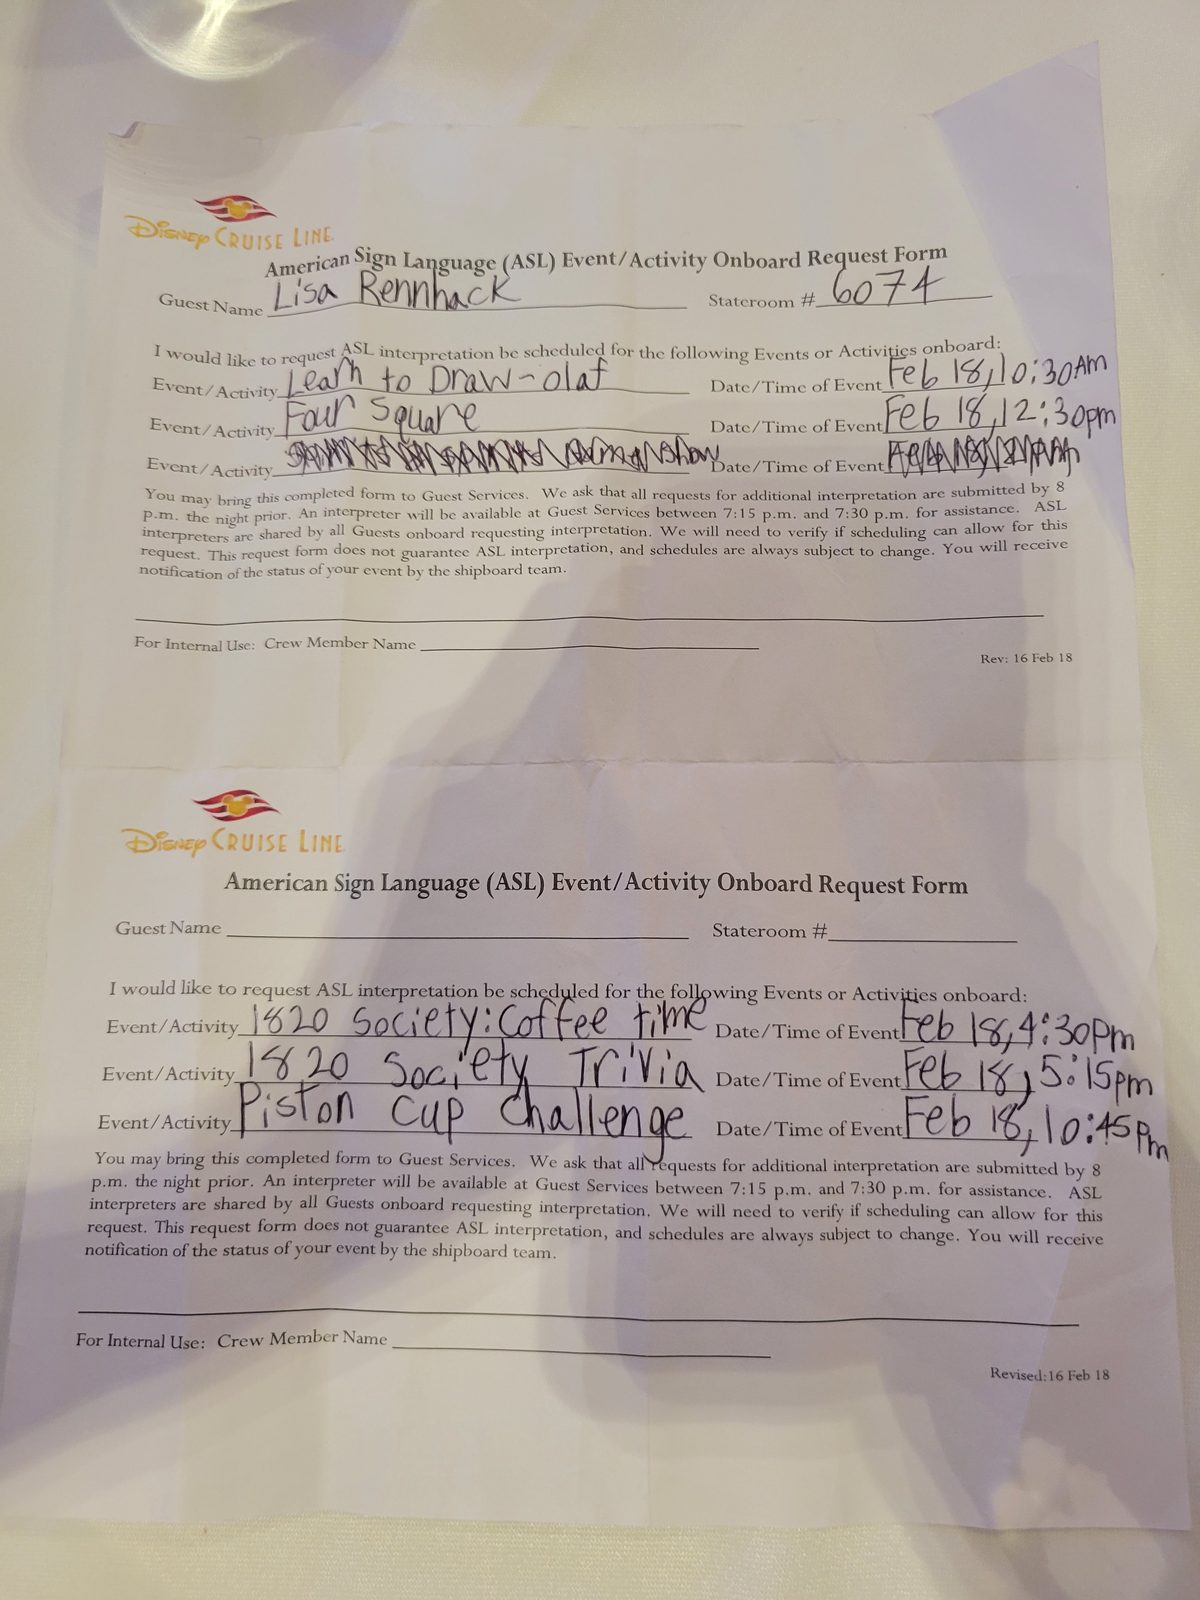 Disney Cruise Line
American Sign Language (ASL) Event/Activity Onboard Request Form
Guest Name Lisa Rennhack Stateroom # 6074
I would like to request ASL interpretation be scheduled for the following Events or Activities onboard:
Event/Activity Learn to Draw-olaf Date/Time of Event Feb 18, 10:30AM
Event/Activity Four Square Date/Time of Event Feb 18, 12:30pm
Event/Activity show Date/Time of Event
You may bring this completed form to Guest Services. We ask that all requests for additional interpretation are submitted by 8
p.m. the night prior. An interpreter will be available at Guest Services between 7:15 p.m. and 7:30 p.m. for assistance. ASL
interpreters are shared by all Guests onboard requesting interpretation. We will need to verify if scheduling can allow for this
request. This request form does not guarantee ASL interpretation, and schedules are always subject to change. You will receive
notification of the status of your event by the shipboard team.
For Internal Use: Crew Member Name
Rev: 16 Feb 18
Disney Cruise Line
American Sign Language (ASL) Event/Activity Onboard Request Form
Guest Name Stateroom #
I would like to request ASL interpretation be scheduled for the following Events or Activities onboard:
Event/Activity 1820 Society: Coffee time Date/Time of Event Feb 18, 4:30pm
Event/Activity 1820 Society Trivia Date/Time of Event Feb 18, 5:15pm
Event/Activity Piston Cup Challenge Date/Time of Event Feb 18, 10:45pm
You may bring this completed form to Guest Services. We ask that all requests for additional interpretation are submitted by 8
p.m. the night prior. An interpreter will be available at Guest Services between 7:15 p.m. and 7:30 p.m. for assistance. ASL
interpreters are shared by all Guests onboard requesting interpretation. We will need to verify if scheduling can allow for this
request. This request form does not guarantee ASL interpretation, and schedules are always subject to change. You will receive
notification of the status of your event by the shipboard team.
For Internal Use: Crew Member Name
Revised:16 Feb 18